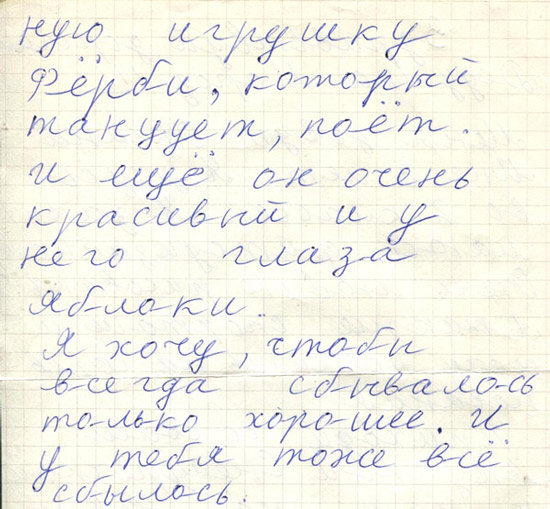 ную игрушку
Фёрби, который
танцует, поёт.
И ещё он очень
красивый и у
него глаза
яблоки.
Я хочу, чтобы
всегда сбывалось
только хорошее. И
у тебя тоже всё
сбылось.